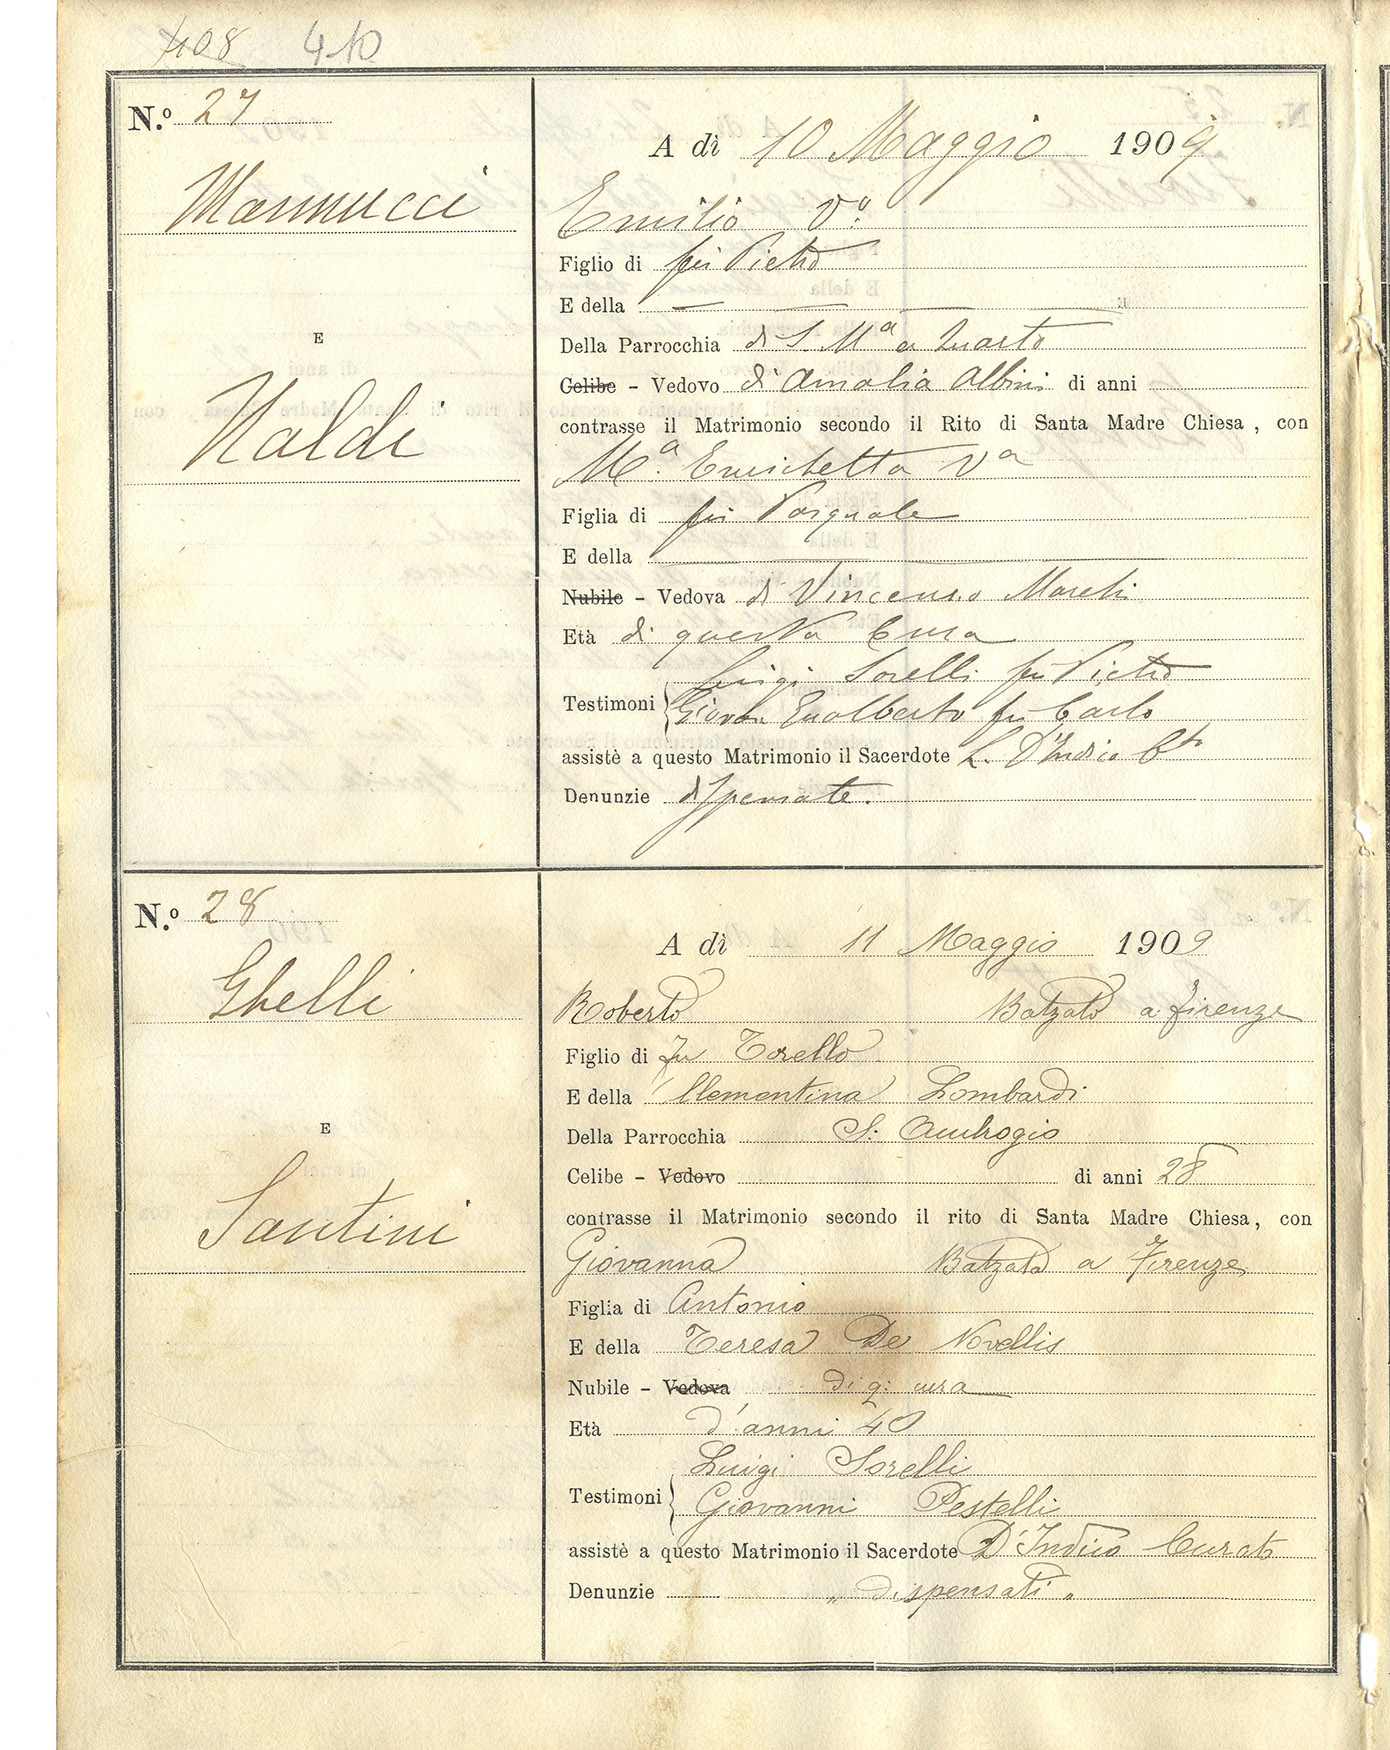 408 410
N.o 27
Mannucci
E
Naldi
A dì 10 Maggio 1909
Emilio Vo
Figlio di fu Pietro
E della —
Della Parrocchia di S. Ma a Quarto
Celibe - Vedovo di Amalia Albini di anni
contrasse il Matrimonio secondo il Rito di Santa Madre Chiesa, con
Ma. Enrichetta Va
Figlia di fu Pasquale
E della —
Nubile - Vedova di Vincenzo Marchi
Età di questa Cura
Testimoni
Luigi Sorelli fu Pietro
Giovan Gualberto fu Carlo
assistè a questo Matrimonio il Sacerdote L. D'Indico Cto
Denunzie dispensate.
N.o 28
Ghelli
E
Santini
A dì 11 Maggio 1909
Roberto Batzato a Firenze
Figlio di fu Torello
E della Clementina Lombardi
Della Parrocchia S. Ambrogio
Celibe - Vedovo di anni 28
contrasse il Matrimonio secondo il rito di Santa Madre Chiesa, con
Giovanna Batzata a Firenze
Figlia di Antonio
E della Teresa De Novellis
Nubile - Vedova di q: cura
Età d'anni 40
Testimoni
Luigi Sorelli
Giovanni Pestelli
assistè a questo Matrimonio il Sacerdote D'Indico Curato
Denunzie " dispensati "